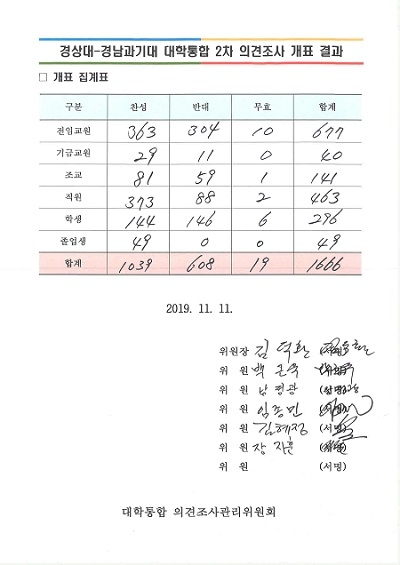 경상대-경남과기대 대학통합 2차 의견조사 개표 결과
□ 개표 집계표
구분 찬성 반대 무효 합계
전임교원 363 304 10 677
기금교원 29 11 0 40
조교 81 59 1 141
직원 373 88 2 463
학생 144 146 6 296
졸업생 49 0 0 49
합계 1039 608 19 1666
2019. 11. 11.
위원장 김덕환
위 원 백근욱
위 원 남명광
위 원 임종민
위 원 김혜정 (서명)
위 원 장지훈
위 원 (서명)
대학통합 의견조사관리위원회